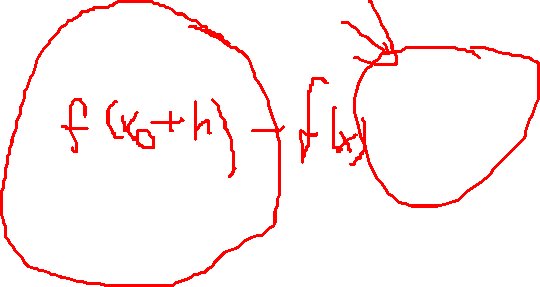 f(x₀+h) - f(x)